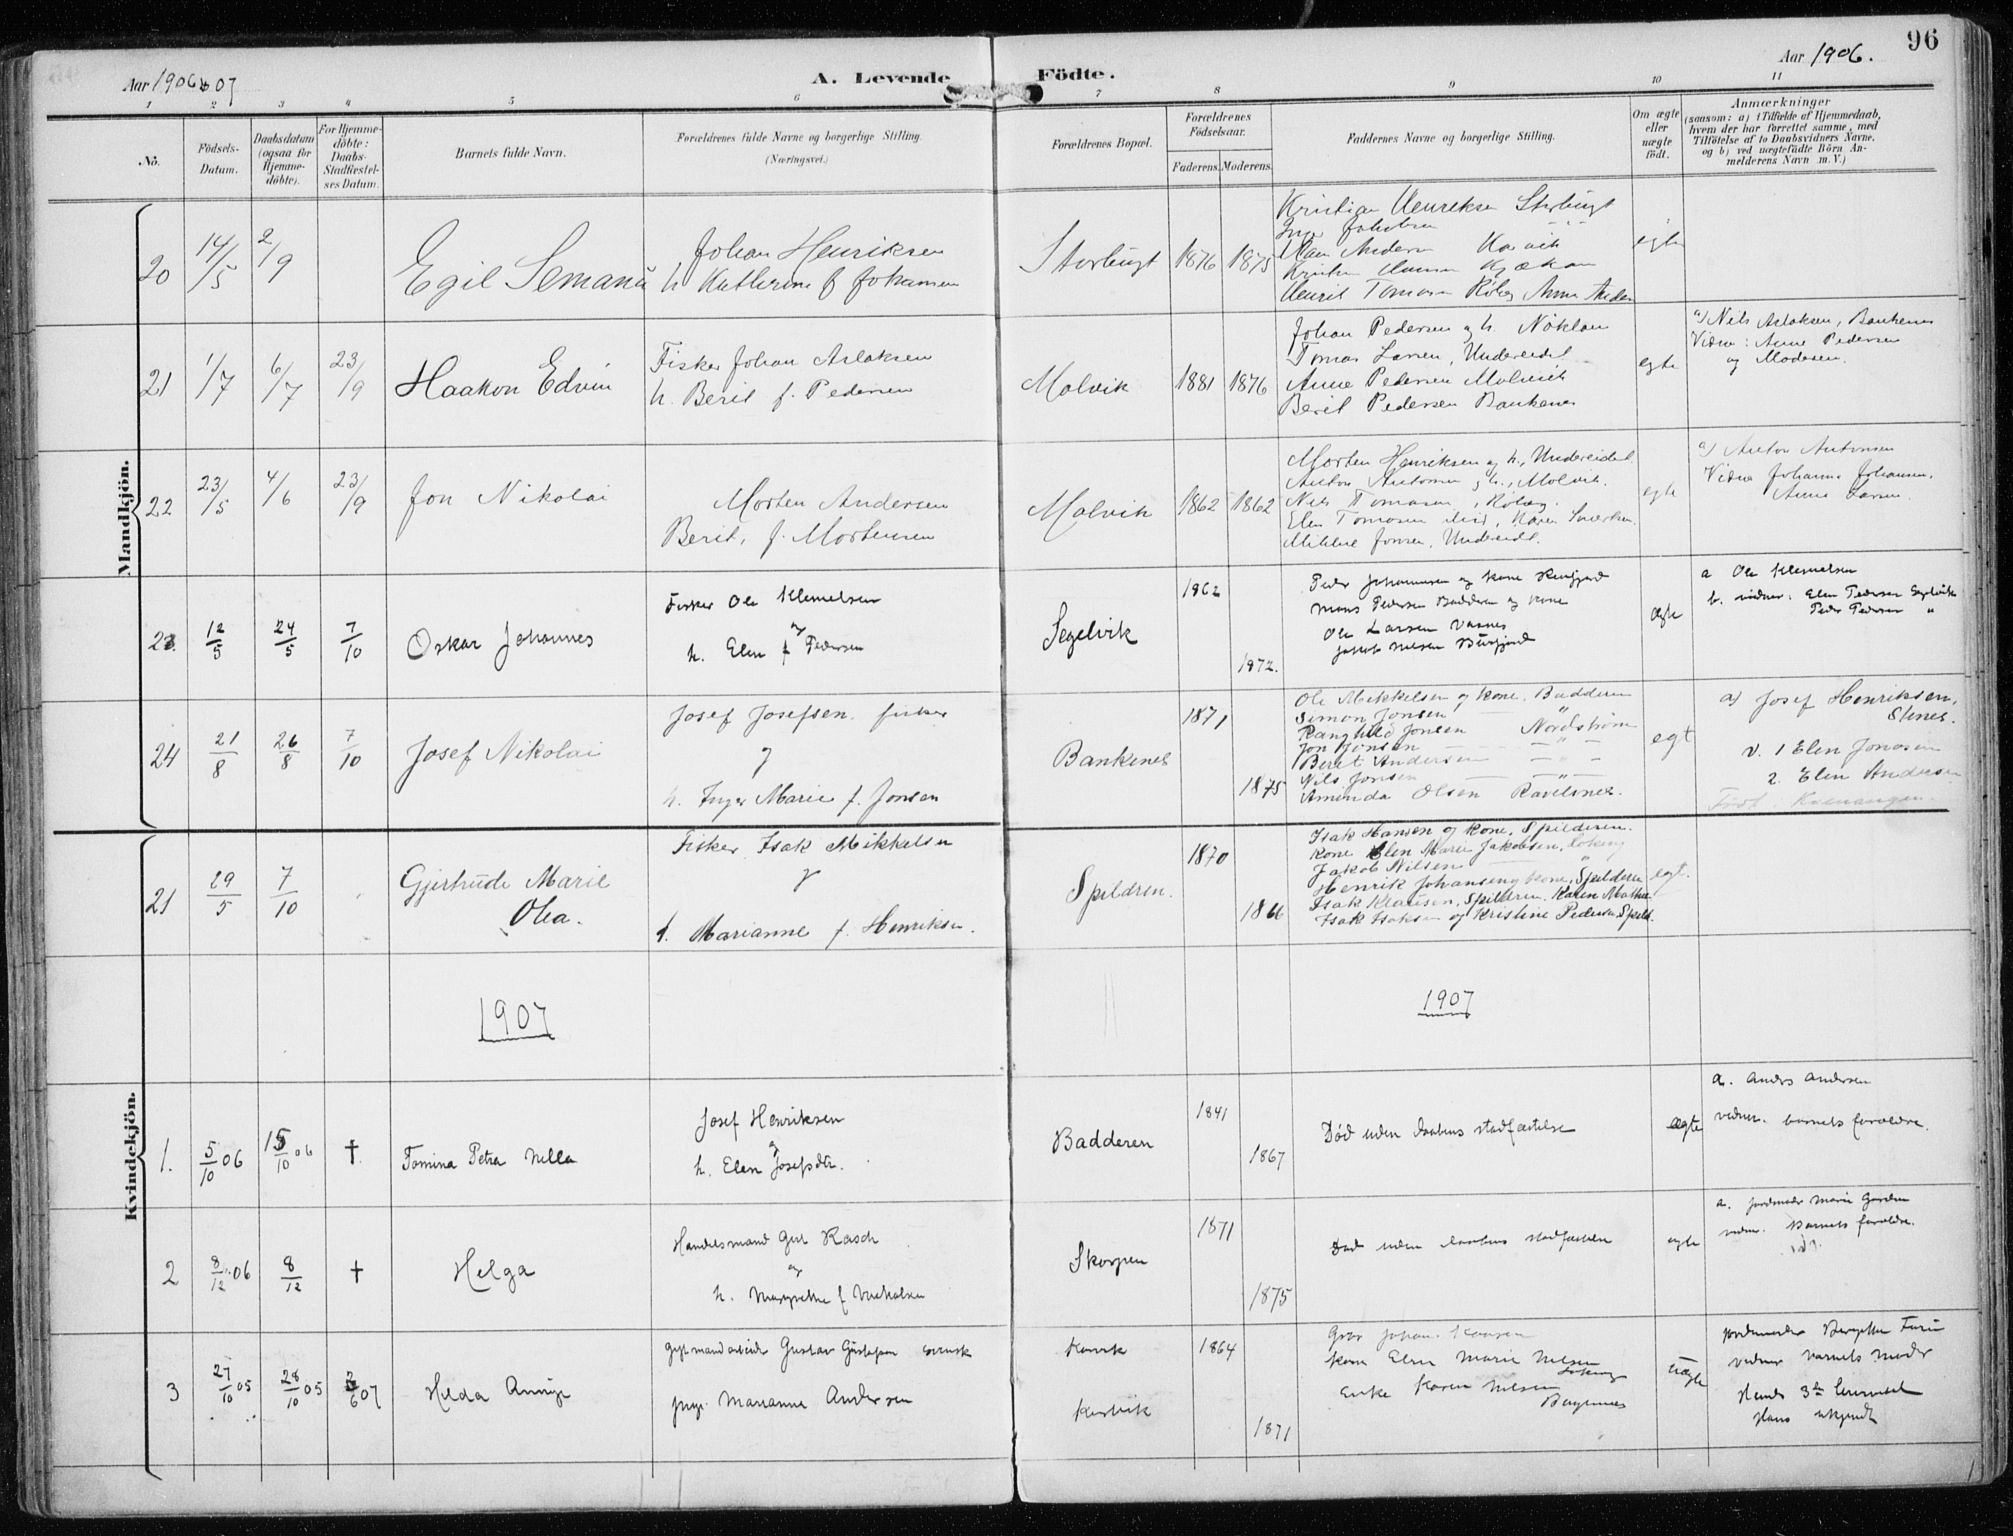 96
Aar 1906 & 07
A. Levende Födte.
Aar 1906.
1 2 3 4 5 6 7 8 9 10 11
No.
Födsels-Datum.
Daabsdatum (ogsaa for Hjemme-döbte).
For Hjemme-döbte: Daabs-Stadfæstel-ses Datum.
Barnets fulde Navn.
Forældrenes fulde Navne og borgerlige Stilling.
(Næringsvei.)
Forældrenes Bopæl.
Forældrenes Födselsaar.
Faderens. Moderens.
Faddernes Navne og borgerlige Stilling.
Om ægte eller uægte födt.
Anmærkninger
(saasom: a) i Tilfælde af Hjemmedaab,
hvem der har forrettet samme, med
Tilföielse af to Daabsvidners Navne.
og b) ved uægtefödte Börn An-
melderens Navn m. V.)
Mandkjön.
20 14/5 2/9 Egil Semana
Johan Henriksen
h Katherine f Johansen
Storbugt 1876 1875
Kristian Henriksen Storbugt
Henrik Tomasen
egte
21 1/7 6/7 23/9 Haakon Edvin
Fisker Johan Aslaksen
h. Berit f. Pedersen
Molvik 1881 1876
Johan Pedersen og h. Nöklan
Tomas Larsen, Undereidet
Anne Pedersen Molvik
Berit Pedersen Bankenes
egte
a) Nils Aslaksen, Bankenes
Vidne: Anne Pedersen
og Moderen.
22 23/5 4/6 23/9 Jon Nikolai
Morten Andersen
Berit, f. Mortensen
Molvik 1862 1862
Morten Henriksen og h., Undereidet.
Anton Antonsen og h., Molvik.
Nils Tomasen,
Elen Tomasen
Mikkel Jonsen, Undereidet.
egte
a) Anton Antonsen
Vidne Johanne Johansen,
Anne Larsen.
23. 12/5 24/5 7/10 Oskar Johannes
Fisker Ole Klemetsen
og
h. Elen f Pedersen
Segelvik 1862 1872.
Peder Johannesen og kone
Mons Pedersen Badderen og kone
Ole Larsen Vasnes
Jakob Nilsen Burfjord
ægte
a Ole Klemetsen
b. vidner. Elen Pedersen Segelvik
Peder Pedersen "
24 21/8 26/8 7/10 Josef Nikolai
Josef Josefsen. fisker
og
h. Inger Marie f. Jonsen
Bankenes 1871 1875
Ole Mikkelsen og kone. Badderen
Simon Jonsen "
Ranghild Jonsen Nordstrøm
Jon Jonsen — " —
Beret Andersen — " —
Nils Jonsen — " —
Aminda Olsen Ravelsnes.
egt
a) Josef Henriksen,
Stenes.
v. 1 Elen Jonasen
2. Elen Andersen
Födt. Kvænangen.
Kvindekjön.
21 29/5 7/10 Gjertrude Marie
Olea.
Fisker Isak Mikkelsen
og
h. Marianne f. Henriksen.
Spildren. 1870 1866
Isak Hansen og kone, Spilderen.
Kone Elen Marie Jakobsen,
Jakob Nilsen "
Henrik Johansen og kone, Spilderen
Isak Klausen, Spilderen. Karen Mathea
Isak Isaksen og Kristine Pedersen, Spild.
egt.
1907
1907
1. 5/10 06 15/10 06 † Tomina Petra Nella
Josef Henriksen
og
h. Elen Josefsdtr.
Badderen 1841 1867
Död uden daabens stadfæstelse
ægte
a. Anders Andersen
vidner. barnets forældre.
2 8/12 06 8/12 † Helga
Handelsmand Gert Rasch
og
h. Margrethe f
Skorpen 1871 1875
Död uden daabens stadfæstelse
egte
a. Jordmoder Marie
vidner. Barnets forældre.
3 27/10 05 28/10 05 2/6 07 Helda
gift mand arbeider Gustav Gustafson svensk
pige. Marianne Andersen
Kjosvik 1864 1871
Kone Elen Marie Nilsen
Enke Karen Nilsen
uægte
Jordemoder
vidner barnets moder
Hendes 3de leiermaal
Hans ukjendt